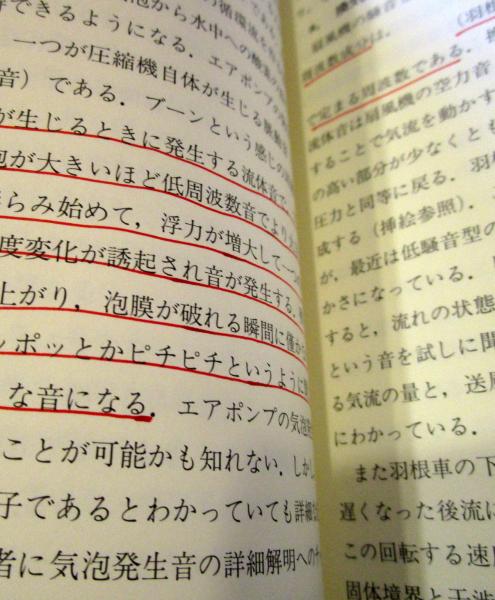 泡から水中への
できるようになる．エアポンプの
一つが圧縮機自体が生じる
音）である．ブーンという感じの
が生じるときに発生する流体音で
泡が大きいほど低周波数音でより
らみ始めて，浮力が増大して一つ
度変化が誘起され音が発生する．
上がり，泡膜が破れる瞬間に僅か
ッポッとかピチピチというように
な音になる．エアポンプの気泡
ことが可能かも知れない．しかし
子であるとわかっていても詳細
者に気泡発生音の詳細解明への
扇風機の騒音
周波数成分は，
で定まる周波数である．
流体音は扇風機の空力音
することで気流を動かす
の高い部分が少なくとも
圧力と同等に戻る．羽
成する（挿絵参照）．
が，最近は低騒音型の
かさになっている．
すると，流れの状態
という音を試しに聞
る気流の量と，送
にわかっている．
また羽根車の下
遅くなった後流に
この回転する速
固体境界と干渉